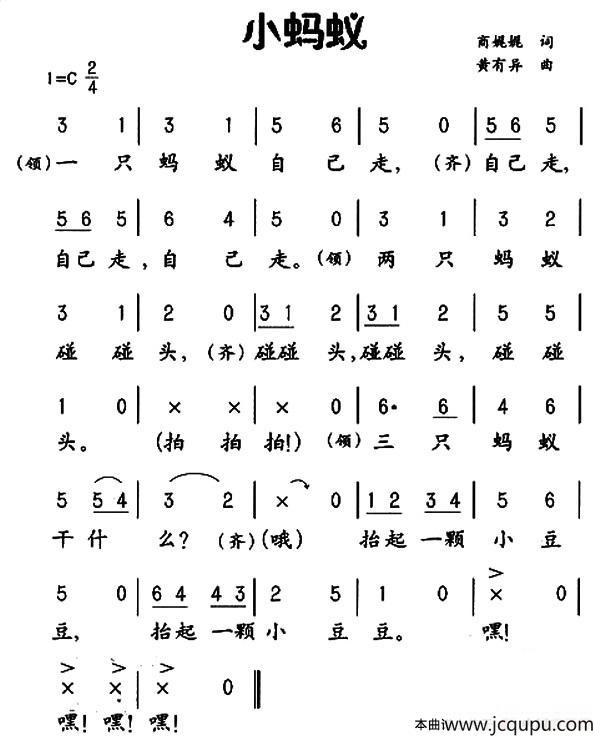 小蚂蚁
商娓娓 词
1=C 2/4
黄有异 曲
3 1 | 3 1 | 5 6 | 5 0 | 5 6 5 |
(领)一 只 蚂 蚁 自 己 走, (齐)自己 走,
5 6 5 | 6 4 | 5 0 | 3 1 | 3 2 |
自己 走, 自 己 走。(领) 两 只 蚂 蚁
3 1 | 2 0 | 3 1 2 | 3 1 2 | 5 5 |
碰 碰 头, (齐)碰碰 头,碰碰 头, 碰 碰
1 0 | × × | × 0 | 6· 6 | 4 6 |
头。 (拍 拍 拍!) (领)三 只 蚂 蚁
5 5 4 | 3 2 | × 0 | 1 2 3 4 | 5 6 |
干 什 么? (齐)(哦) 抬起 一颗 小 豆
5 0 | 6 4 4 3 | 2 5 | 1 0 | × 0 |
豆, 抬起 一颗 小 豆 豆。 嘿!
× × | × 0 ‖
嘿! 嘿! 嘿!
本曲iwww.jcqupu.com